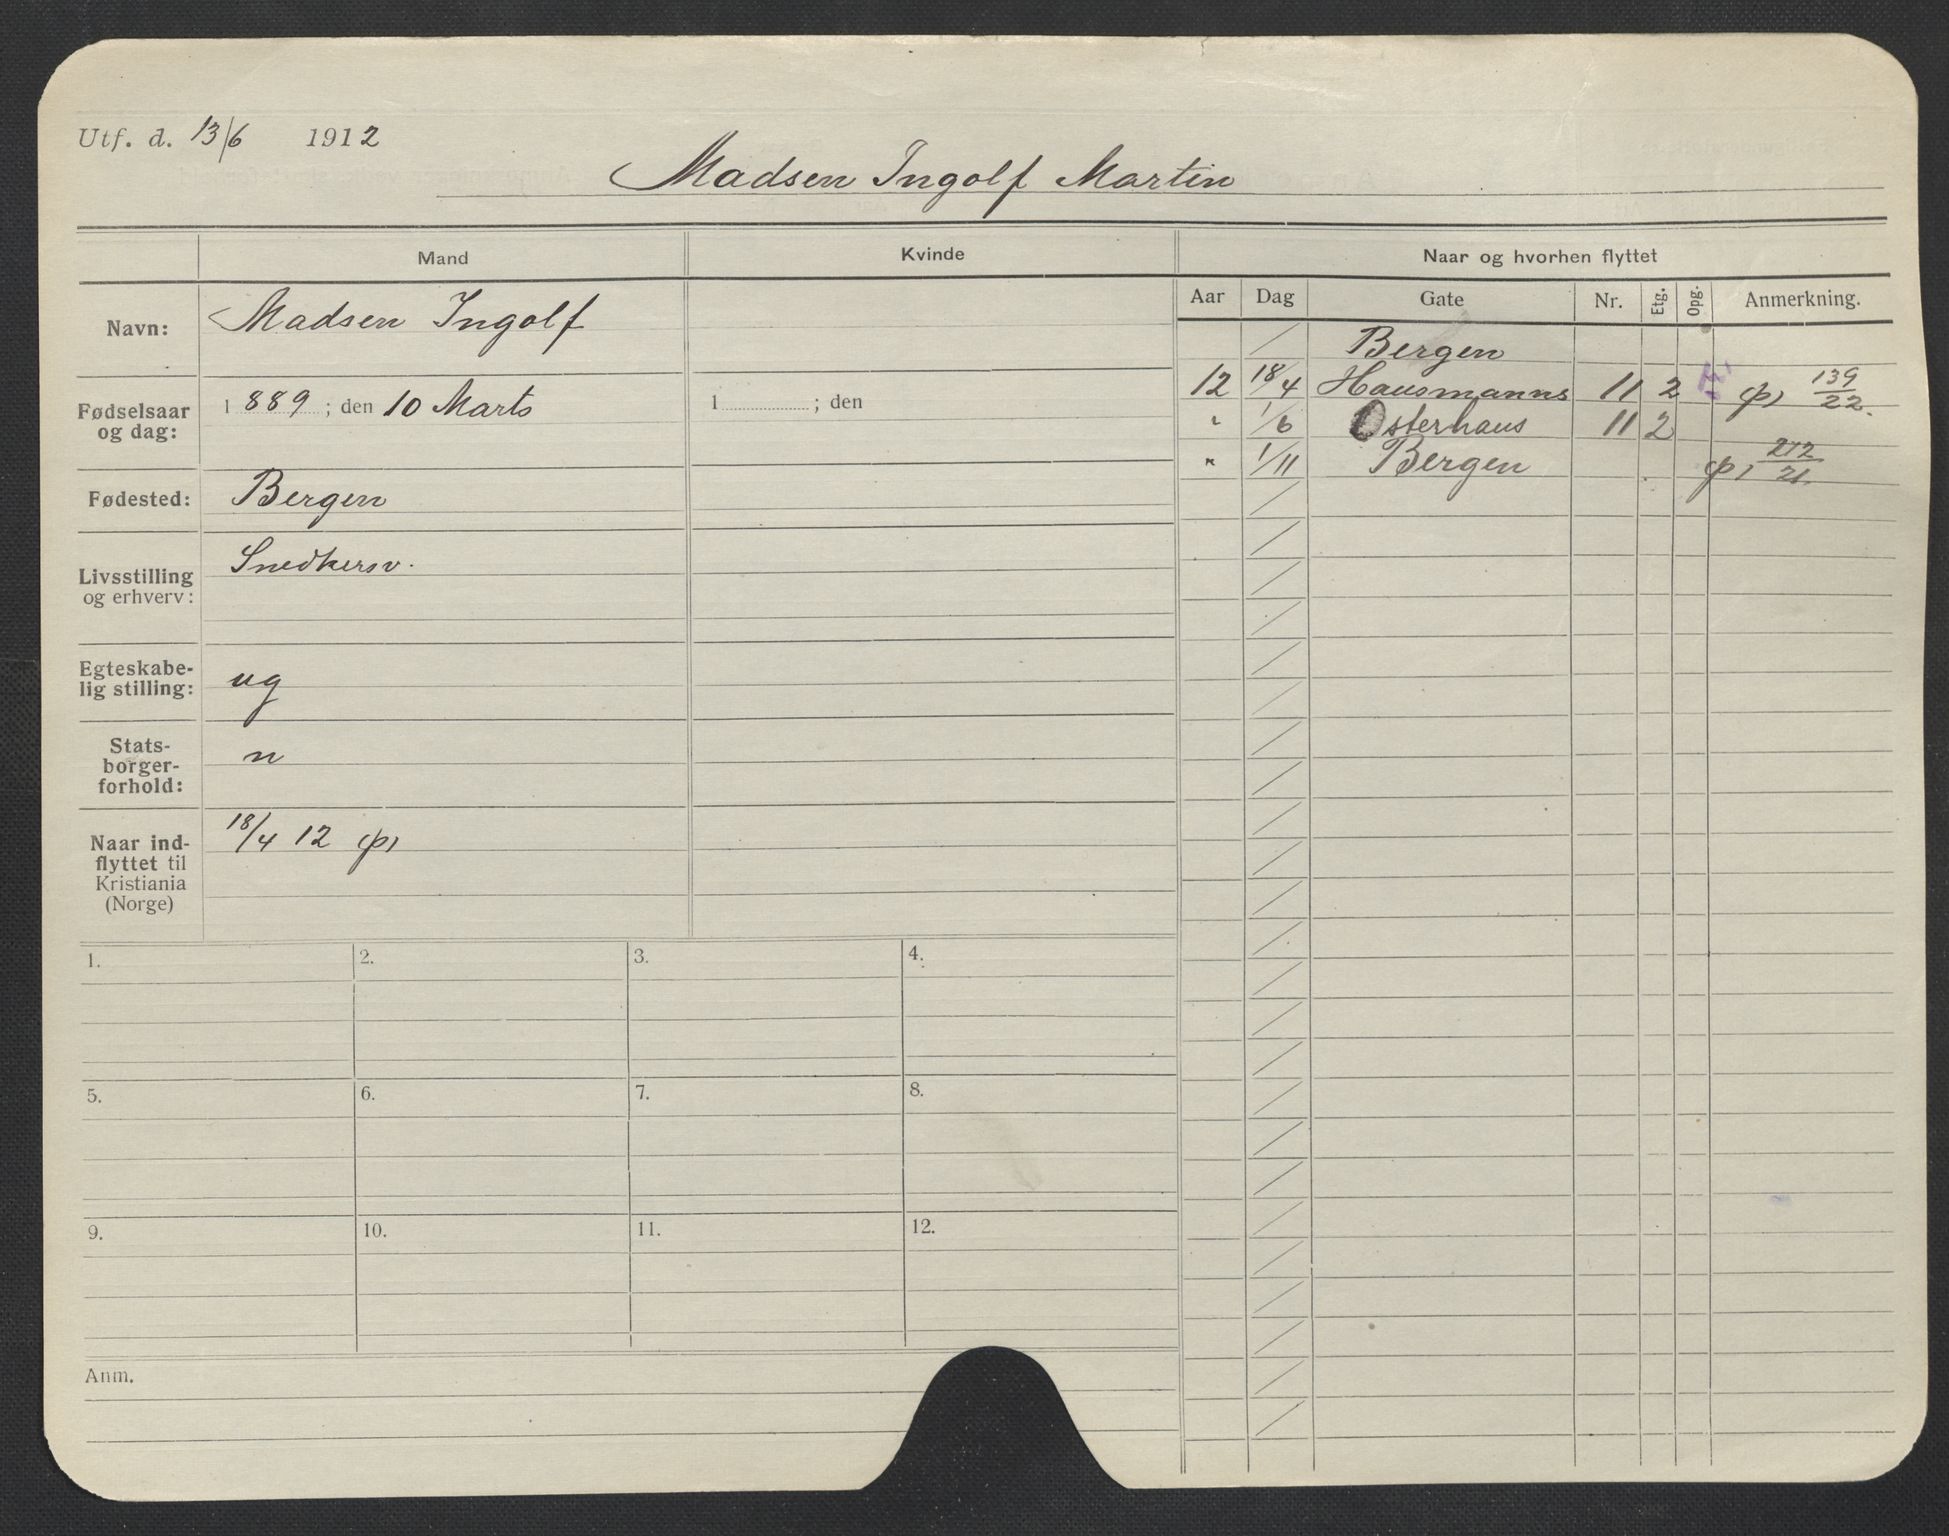 Utf. d. 13/6 1912
Madsen Ingolf Martin
Mand Kvinde Naar og hvorhen flyttet
Aar Dag Gate Nr. Etg. Opg. Anmerkning.
Navn: Madsen Ingolf
Bergen
12 18/4 Hausmanns 11 2 139/22.
Fødselsaar og dag: 1889; den 10 Marts 1 ; den
" 1/6 Osterhaus 11 2
" 1/11 Bergen 212/21.
Fødested: Bergen
Livsstilling og erhverv: Snedkersv.
Egteskabe-
lig stilling: ug
Stats-
borger-
forhold: n
Naar ind-
flyttet til
Kristiania
(Norge) 18/4 12
1. 2. 3. 4.
5. 6. 7. 8.
9. 10. 11. 12.
Anm.